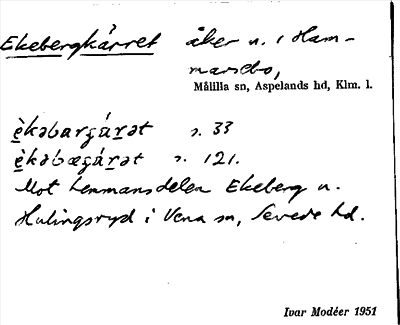 Ekebergkärret åker n. i Ham-
marsebo,
Målilla sn, Aspelands hd, Klm. l.
è̱kəbargá́ṟət s. 33
è̱kəbægá́ṟət s. 121.
Mot hemmansdelen Ekeberg u.
Hulingsryd i Vena sn, Sevede hd.
Ivar Modéer 1951